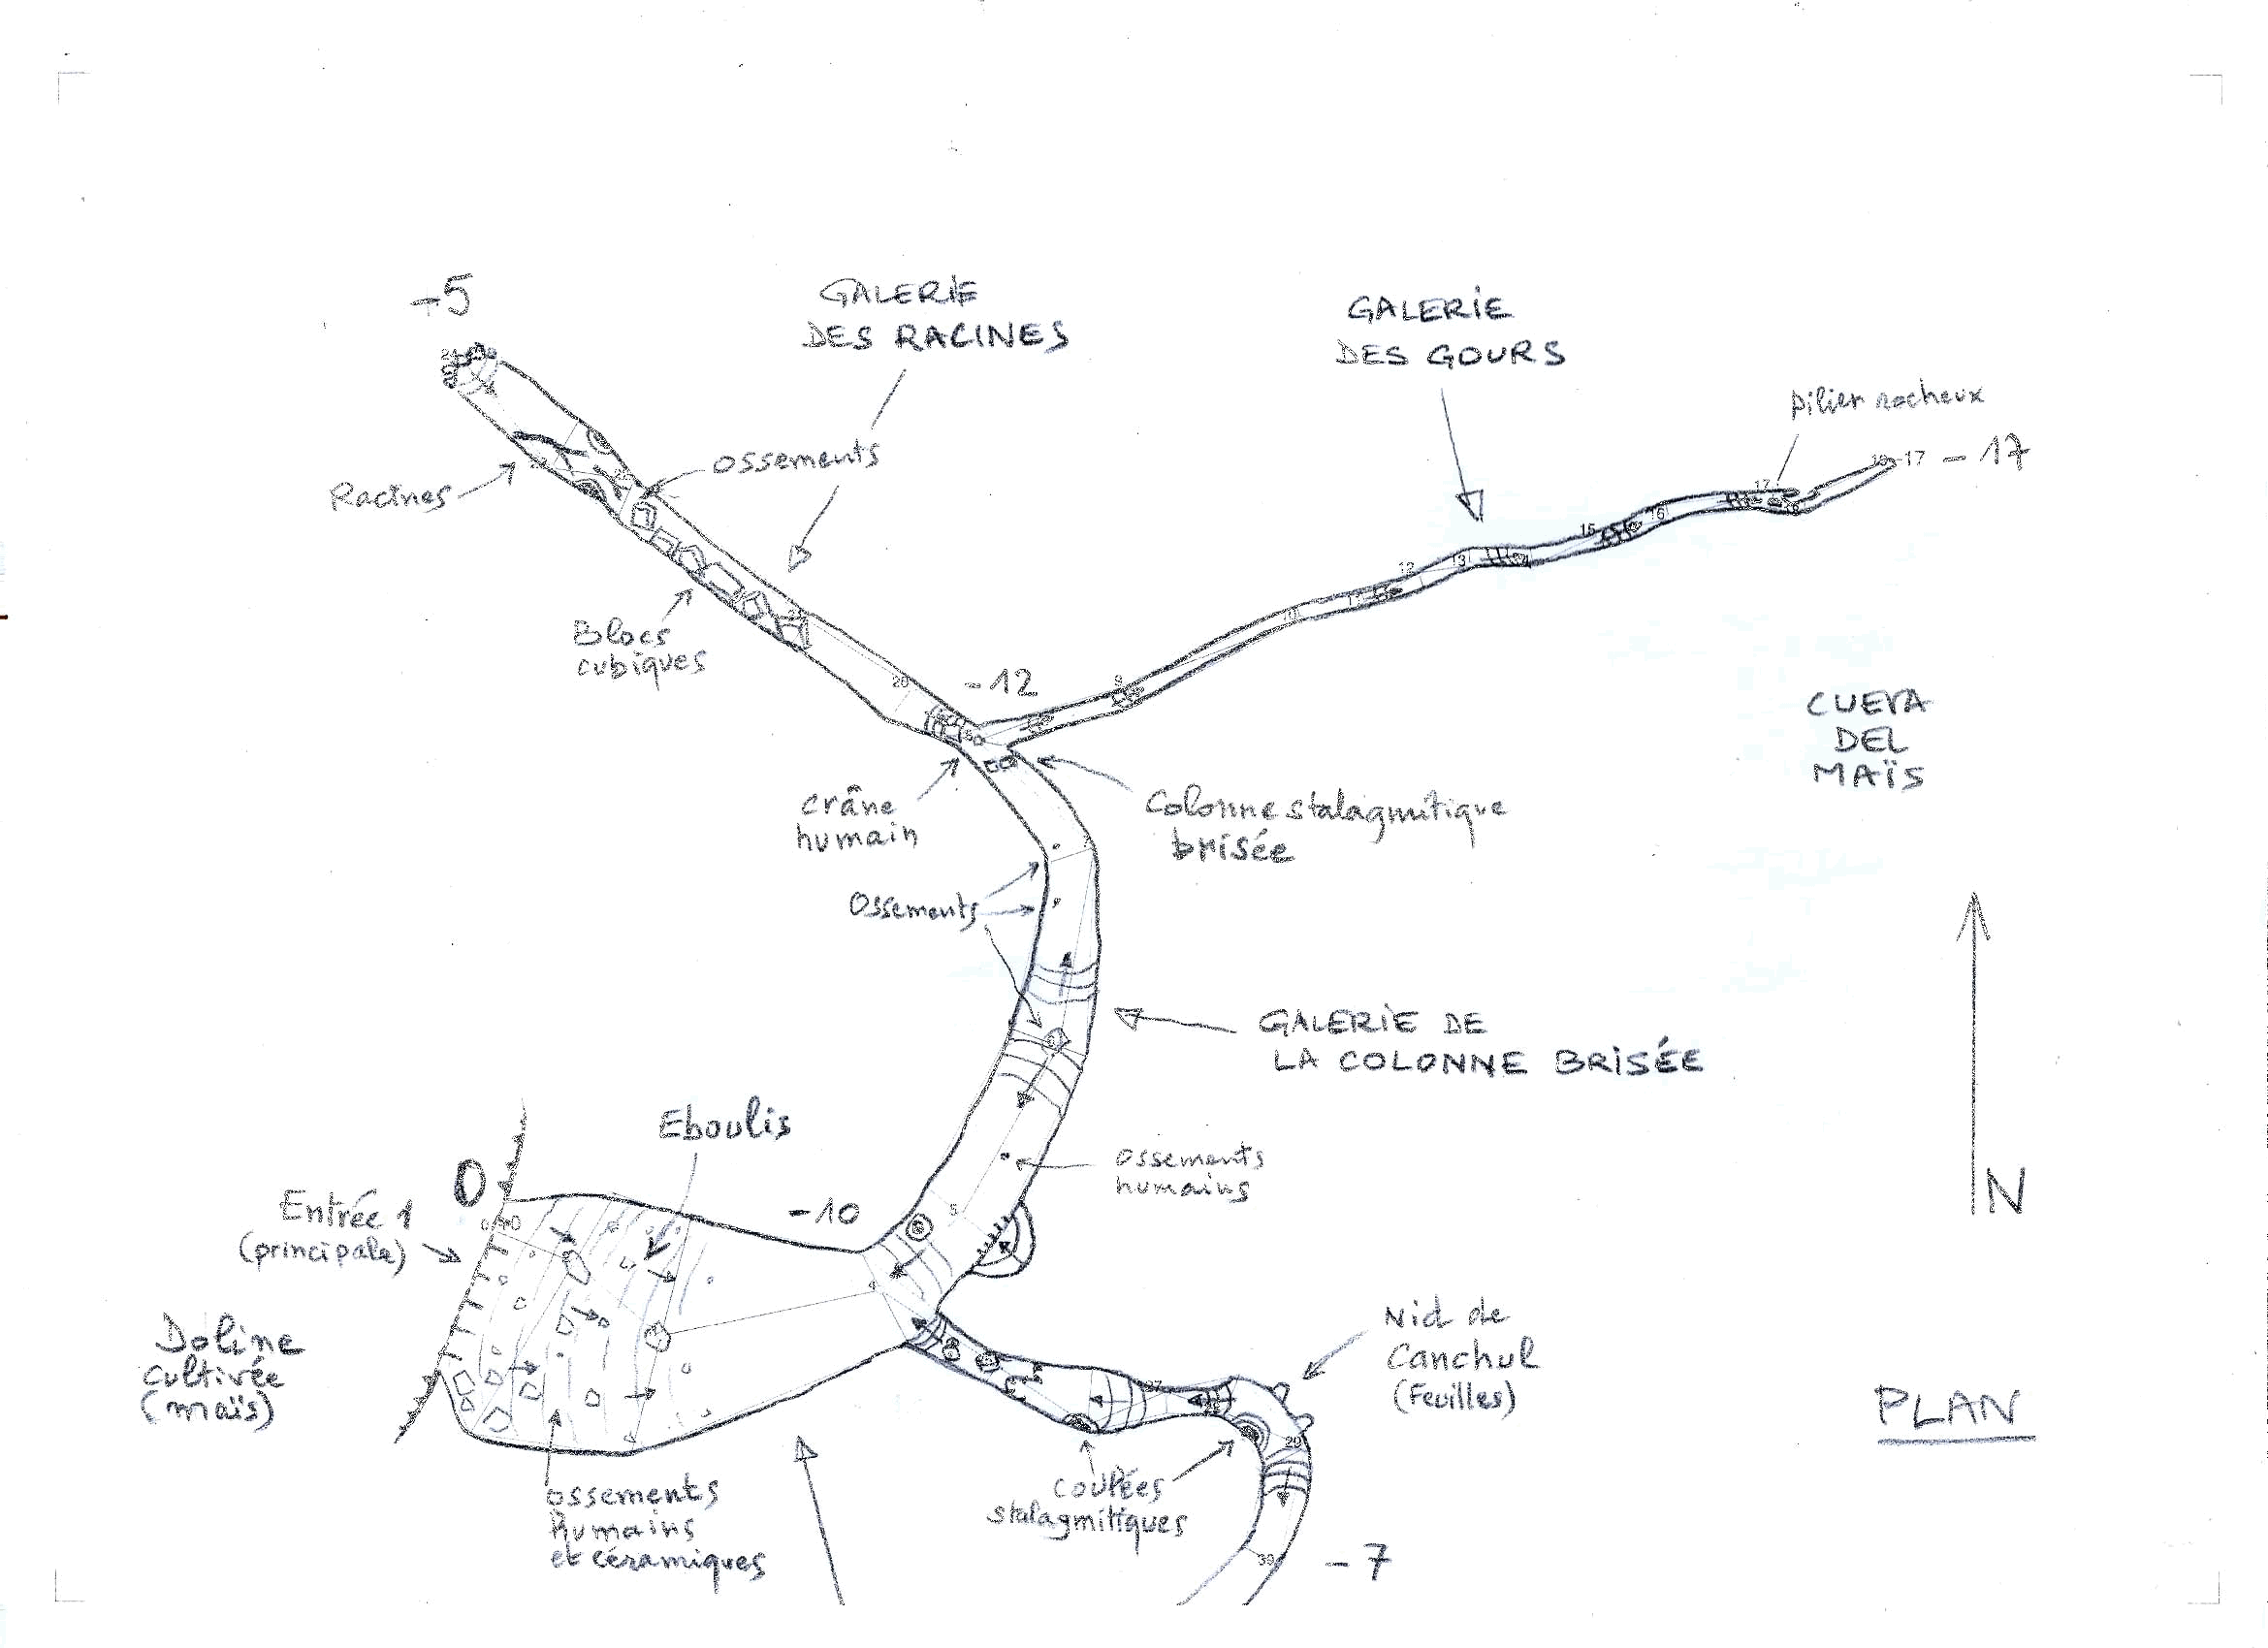 -5
GALERIE
DES RACINES
GALERIE
DES GOURS
pilier rocheux
-17 -17
ossements
Racines
Blocs
cubiques
-12
CUEVA
DEL
MAÏS
crâne
humain
Colonne stalagmitique
brisée
Ossements
GALERIE DE
LA COLONNE BRISÉE
Eboulis
ossements
humains
0
Entrée 1
(principale)
-10
N
Doline
cultivée
(maïs)
Nid de
Canchul
(Feuilles)
PLAN
ossements
humains
et céramiques
coulées
stalagmitiques
-7
9
12
13
15
16
17
5
4
29